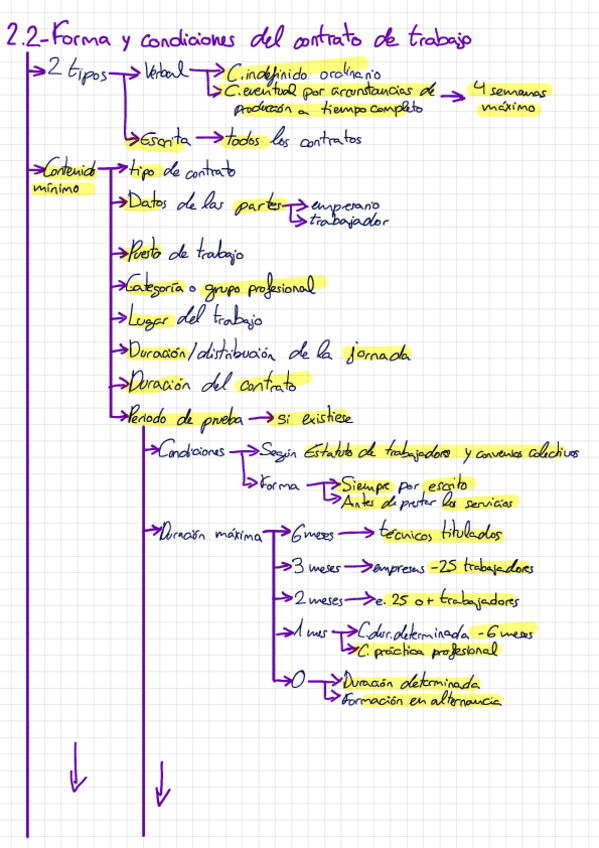 2.2-Forma y condiciones del contrato de trabajo
2 tipos → Verbal → C.indefinido ordinario
→ C.eventual por circunstancias de → 4 semanas
producción a tiempo completo máximo
→ Escrita → todos los contratos
→ Contenido → tipo de contrato
mínimo
→ Datos de las partes → empresario
→ trabajador
→ Puesto de trabajo
→ Categoría o grupo profesional
→ Lugar del trabajo
→ Duración/distribución de la jornada
→ Duración del contrato
→ Periodo de prueba → si existiese
→ Condiciones → Según Estatuto de trabajadores y convenios colectivos
→ Forma → Siempre por escrito
→ Antes de prestar los servicios
→ Duración máxima → 6 meses → técnicos titulados
→ 3 meses → empresas -25 trabajadores
→ 2 meses → e. 25 o + trabajadores
→ 1 mes → C.dur.determinada -6 meses
→ C. práctica profesional
→ 0 → Duración determinada
→ Formación en alternancia